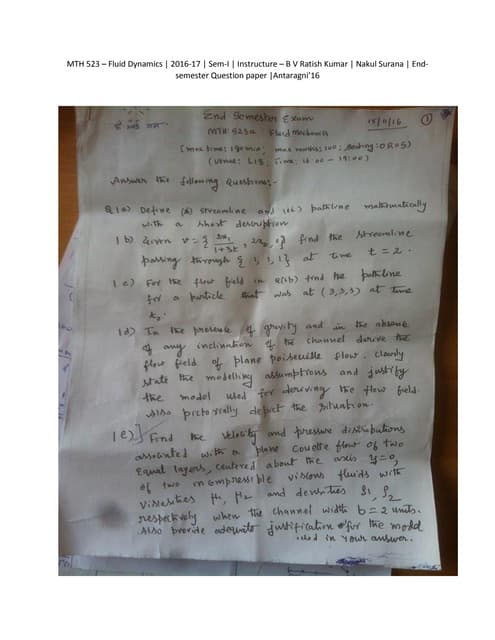 MTH 523 – Fluid Dynamics | 2016-17 | Sem-I | Instructure – B V Ratish Kumar | Nakul Surana | End-
semester Question paper |Antaragni'16
End Semester Exam
18/11/16
1
MTH 523a Fluid Mechanics
[max time: 180 min; max marks: 100;
(Venue: L15; Time: 16 00 - 19:00)
Answer the following Questions:-
Q 1(a) Define (i) streamline and (ii) pathline mathematically
with a short description
1 b) Given v = { 2x1/1+3t, 2x2, 0} find the streamline
passing through {1, 1, 1} at time t = 2.
1 c) For the flow field in Q1(b) find the pathline
for a particle that was at (3,3,3) at time
1d) In the presence of gravity and in the absence
of any inclination of the channel derive the
flow field of plane poiseuille flow. Clearly
state the modelling assumptions and justify
the model used for deriving the flow field.
Also pictorially depict the situation.
1 e) Find the velocity and pressure distributions
associated with a plane Couette flow of two
Equal layers, centered about the axis y=0,
of two incompressible viscous fluids with
viscosities μ1, μ2 and densities ρ1, ρ2
respectively when the channel width b = 2 units.
Also provide adequate justification for the model
used in your answer.